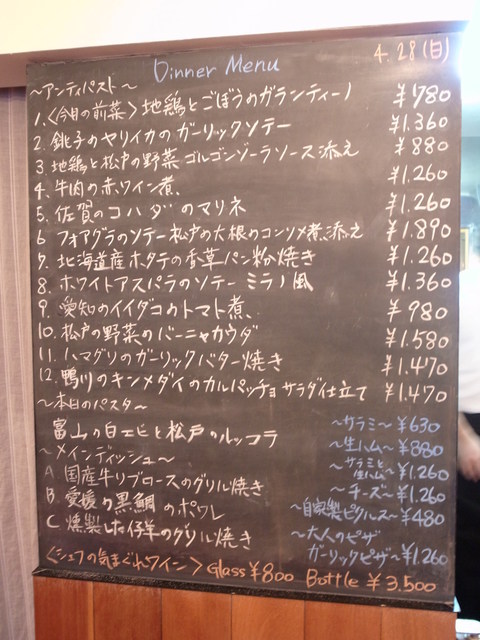 4.28(日)
Dinner Menu
〜アンティパスト〜
1.〈今日の前菜〉地鶏とごぼうのガランティーノ ¥780
2. 銚子のヤリイカのガーリックソテー ¥1.360
3. 地鶏と松戸の野菜ゴルゴンゾーラソース添え ¥880
4. 牛肉の赤ワイン煮、 ¥1.260
5. 佐賀のコハダのマリネ ¥1.260
6 フォアグラのソテー松戸の大根のコンソメ煮添え ¥1.890
7. 北海道産ホタテの香草パン粉焼き ¥1.260
8. ホワイトアスパラのソテー ミラノ風 ¥1.360
9. 愛知のイイダコのトマト煮、 ¥980
10. 松戸の野菜のバーニャカウダ ¥1.580
11. ハマグリのガーリックバター焼き ¥1.470
12. 鴨川のキンメダイのカルパッチョ サラダ仕立て ¥1.470
〜本日のパスタ〜
富山の白エビと松戸のルッコラ
〜メインディッシュ〜
A 国産牛リブロースのグリル焼き
B. 愛媛の黒鯛のポワレ
C 燻製した仔羊のグリル焼き
〜サラミ〜¥630
〜生ハム〜¥880
〜サラミと
生ハム〜¥1.260
〜チーズ〜¥1.260
〜自家製ピクルス〜¥480
〜大人のピザ
ガーリックピザ〜¥1.260
〈シェフの気まぐれワイン〉Glass ¥800 Bottle ¥3.500